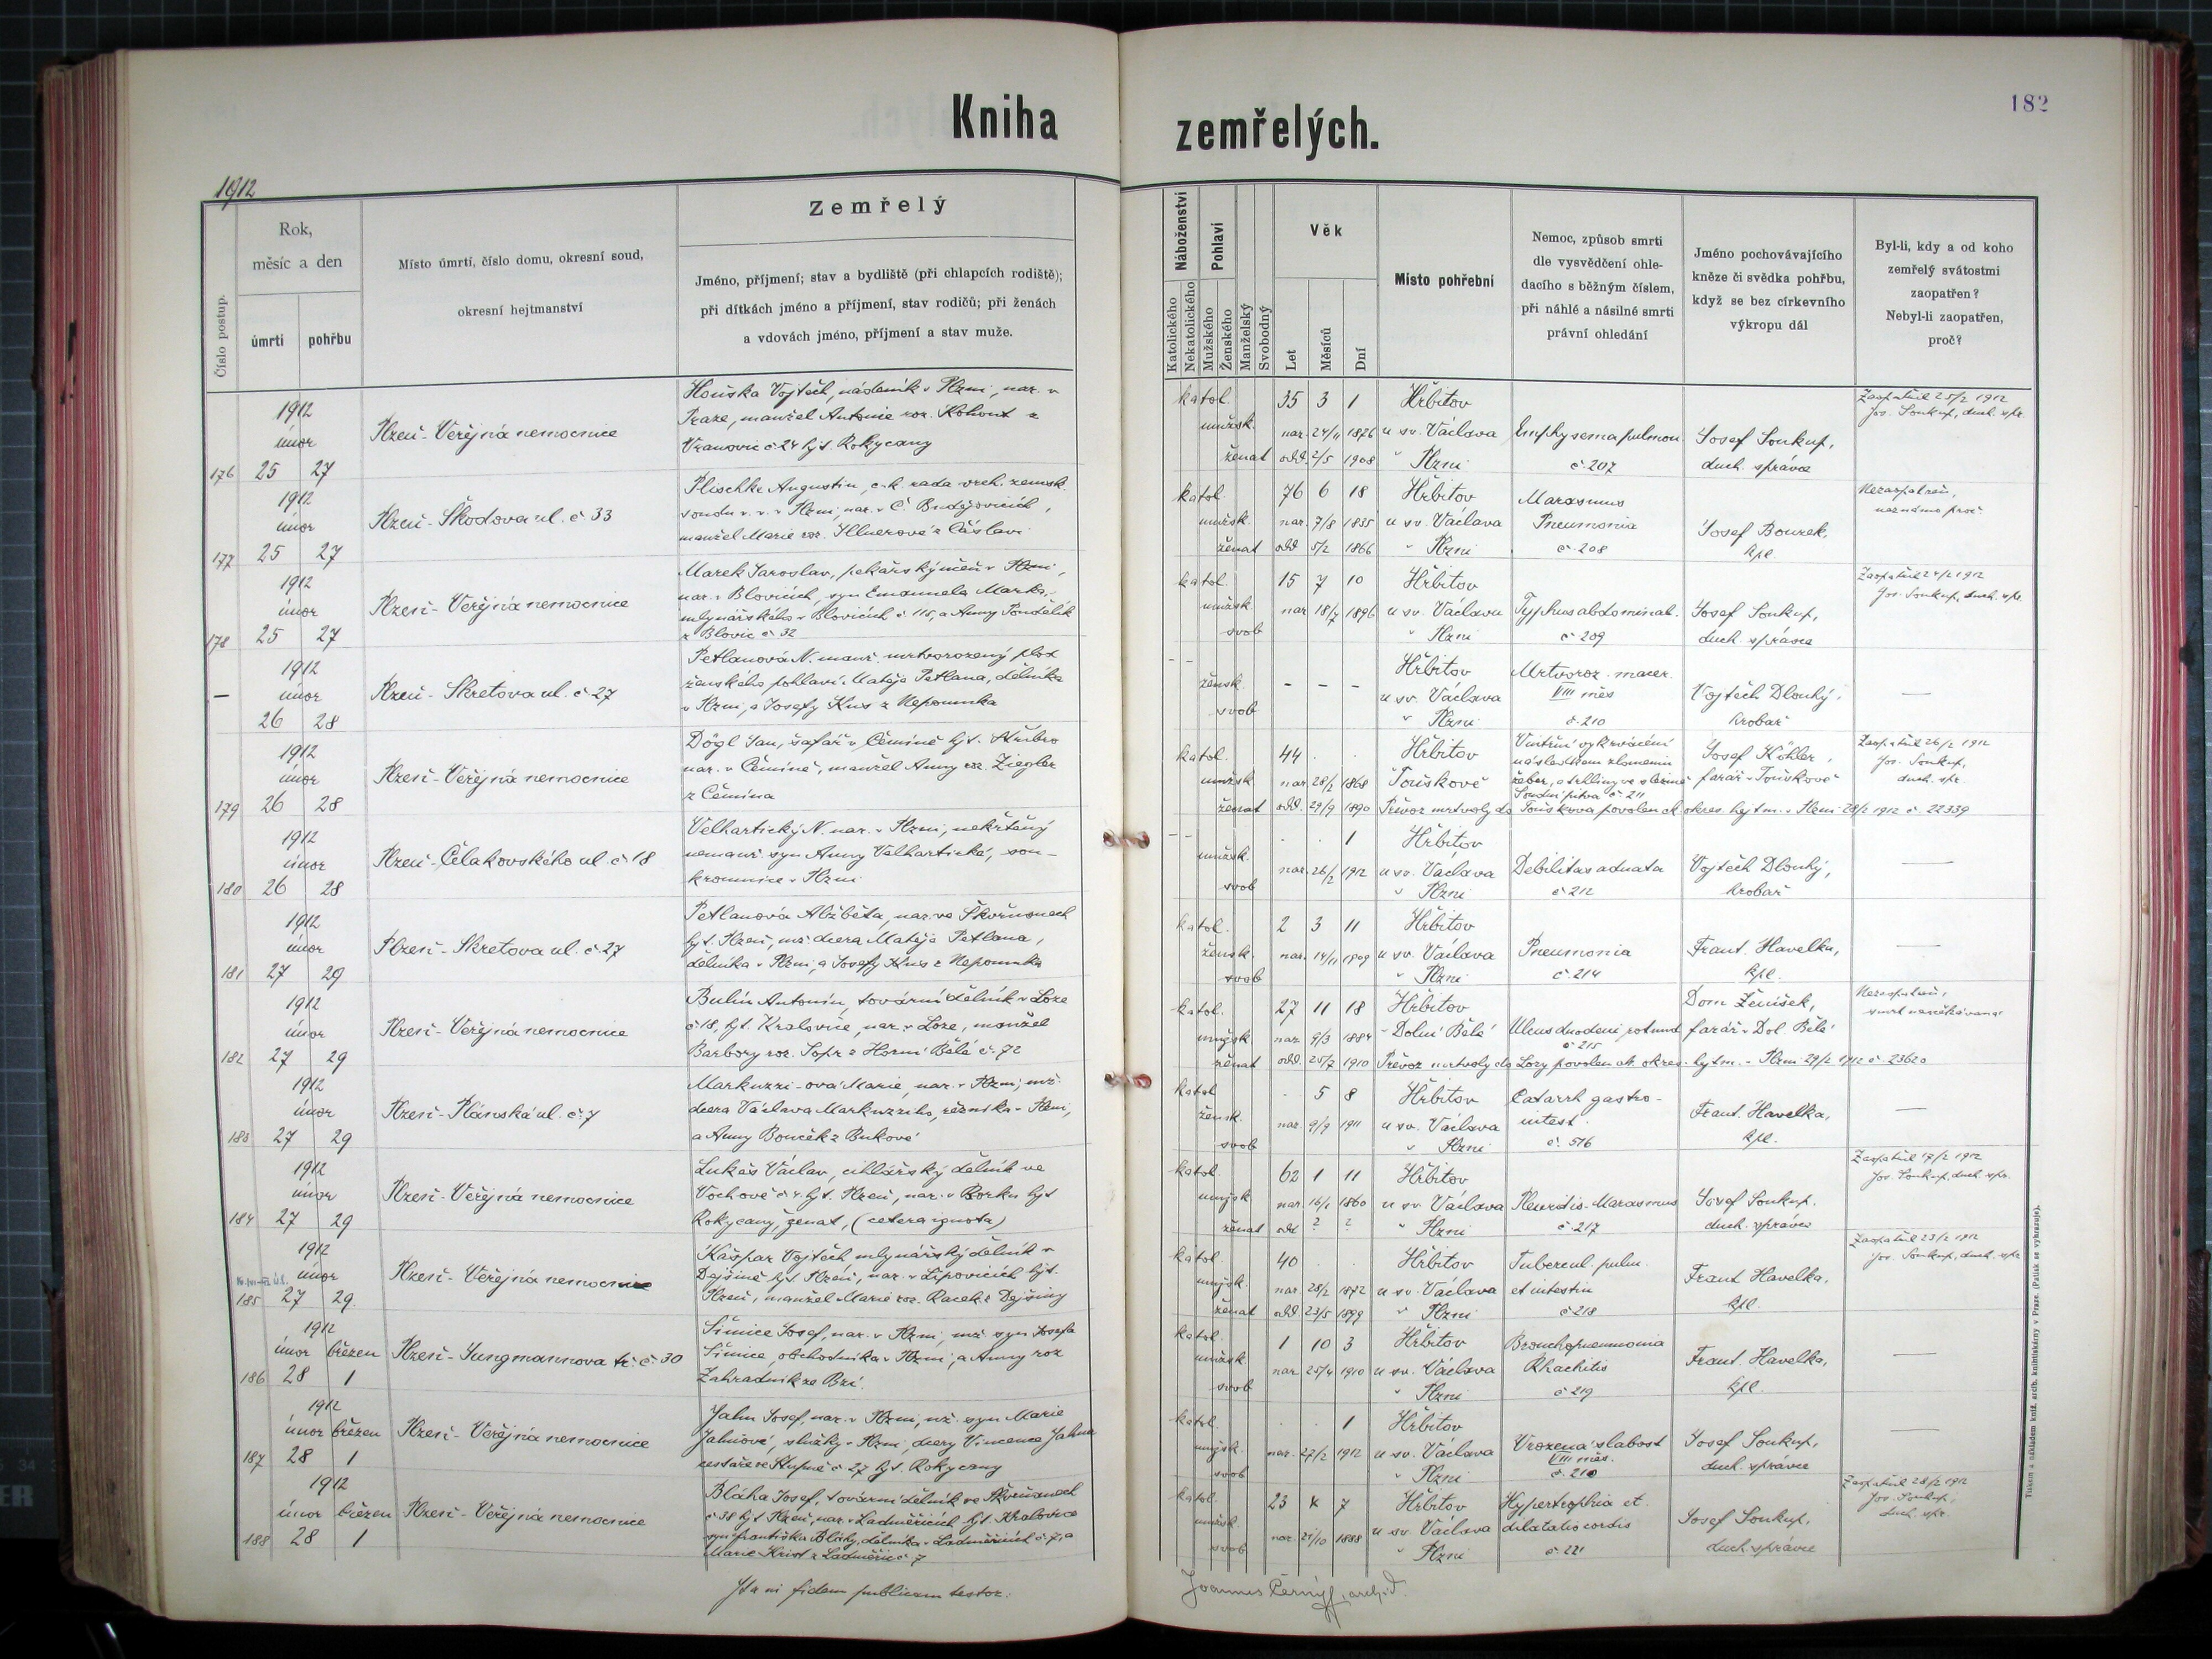 182
Kniha zemřelých.
1912
Číslo postup.
Rok,
měsíc a den
úmrtí
pohřbu
Místo úmrtí, číslo domu, okresní soud,
okresní hejtmanství
Zemřelý
Jméno, příjmení; stav a bydliště (při chlapcích rodiště);
při dítkách jméno a příjmení, stav rodičů; při ženách
a vdovách jméno, příjmení a stav muže.
Náboženství
Katolického
Nekatolického
Pohlaví
Mužského
Ženského
Manželský
Svobodný
Věk
Let
Měsíců
Dní
Místo pohřební
Nemoc, způsob smrti
dle vysvědčení ohle-
dacího s běžným číslem,
při náhlé a násilné smrti
právní ohledání
Jméno pochovávajícího
kněze či svědka pohřbu,
když se bez církevního
výkropu dál
Byl-li, kdy a od koho
zemřelý svátostmi
zaopatřen?
Nebyl-li zaopatřen,
proč?
176
1912
únor
25 27
Plzeň - Veřejná nemocnice
Houska Vojtěch, nádeník v Plzni, nar. v
Praze, manžel Antonie roz. Kohout z
Vranovic č 24 hjt. Rokycany
katol.
mužsk.
ženat
35 3 1
nar. 24/11 1876
odd. 2/5 1908
Hřbitov
u sv. Václava
v Plzni
Emphysema pulmon
č. 207
Josef Soukup,
duch. správce
Zaopatřil 25/2 1912
Jos. Soukup, duch. spr.
177
1912
únor
25 27
Plzeň - Škodova ul. č 33
Plischke Augustin, c. k. rada vrch. zemsk.
soudu v. v. v Plzni, nar. v Č. Budějovicích,
manžel Marie roz. Illnerové z Čáslavi
katol.
mužsk.
ženat
76 6 18
nar. 7/8 1835
odd 5/2 1866
Hřbitov
u sv. Václava
v Plzni
Marasmus
Pneumonia
č 208
Josef Bourek,
kpl.
Nezaopatřen,
neznámo proč
178
1912
únor
25 27
Plzeň - Veřejná nemocnice
Marek Jaroslav, pekařský učeň v Plzni,
nar. v Blovicích, syn Emanuela Marka,
mlynářského v Blovicích č 115, a Anny Pondělík
z Blovic č 32
katol.
mužsk.
svob
15 7 10
nar 18/7 1896
Hřbitov
u sv. Václava
v Plzni
Typhus abdominal.
č 209
Josef Soukup,
duch. správce
Zaopatřil 24/2 1912
Jos. Soukup, duch. spr.
–
1912
únor
26 28
Plzeň - Skretova ul. č 27
Petlanová N. manž. mrtvorozený plod
ženského pohlaví Matěje Petlana, dělníka
v Plzni, a Josefy Kus z Nepomuka
– –
žensk.
svob
– – –
Hřbitov
u sv. Václava
v Plzni
Mrtvoroz. macer.
VIII měs
č. 210
Vojtěch Dlouhý,
hrobař
—
179
1912
únor
26 28
Plzeň - Veřejná nemocnice
Dögl Jan, šafář v Čemíně hjt. Stříbro
nar. v Čemíně, manžel Anny roz. Ziegler
z Čemína
katol.
mužsk
ženat
44 . .
nar. 28/2 1868
odd. 29/9 1890
Hřbitov
Touškově
Vnitřní vykrvácení
následkem zlomenin
žeber, a trhliny ve slezině
Soudní pitva č 211
Josef Köhler,
farář v Touškově
Zaopatřil 26/2 1912
Jos. Soukup,
duch. spr.
Převoz mrtvoly do Touškova povolen ck okres. hejtm. v Plzni 28/2 1912 č. 22339
180
1912
únor
26 28
Plzeň - Čelakovského ul. č 18
Velhartický N. nar. v Plzni, nekřtěný
nemanž. syn Anny Velhartické, sou-
kromnice v Plzni
– –
mužsk.
svob
. . 1
nar. 26/2 1912
Hřbitov
u sv. Václava
v Plzni
Debilitas adnata
č 212
Vojtěch Dlouhý,
hrobař
—
181
1912
únor
27 29
Plzeň - Skretova ul. č 27
Petlanová Alžběta, nar. ve Skvrňanech
hjt. Plzeň, mž. dcera Matěje Petlana,
dělníka v Plzni, a Josefy Kus z Nepomuka
katol.
žensk.
svob
2 3 11
nar. 14/11 1909
Hřbitov
u sv. Václava
v Plzni
Pneumonia
č. 214
Frant. Havelka,
kpl.
—
182
1912
únor
27 29
Plzeň - Veřejná nemocnice
Bulín Antonín, tovární dělník v Loze
č 18, hjt. Kralovice, nar. v Loze, manžel
Barbory roz. Sopr z Horní Bělé č. 72
katol.
mužsk.
ženat
27 11 18
nar. 9/3 1884
odd. 25/7 1910
Hřbitov
v Dolní Bělé
Ulcus duodeni rotund
č 215
Dom Ženíšek,
farář v Dol. Bělé
Nezaopatřen,
smrt neočekávaná
Převoz mrtvoly do Lozy povolen ck. okres. hejtm. v Plzni 29/2 1912 č. 23620
183
1912
únor
27 29
Plzeň - Plánská ul. č. 7
Markuzzi-ová Marie, nar. v Plzni, mž.
dcera Václava Markuzziho, řezníka v Plzni,
a Anny Bouček z Bukové
katol
žensk.
svob
. 5 8
nar. 9/9 1911
Hřbitov
u sv. Václava
v Plzni
Catarrh gastro-
intest.
č. 516
Frant. Havelka,
kpl.
—
184
1912
únor
27 29
Plzeň - Veřejná nemocnice
Lukáš Václav, cihlářský dělník ve
Vochově č 4. hjt. Plzeň, nar. v Borku hjt
Rokycany, ženat, (cetera ignota)
katol.
mužsk
ženat
62 1 11
nar. 16/1 1860
odd ? ?
Hřbitov
u sv. Václava
v Plzni
Pleuritis - Marasmus
č. 217
Josef Soukup.
duch. správce
Zaopatřil 17/2 1912
Jos. Soukup, duch. spr.
185
1912
únor
27 29.
Plzeň - Veřejná nemocnice
Kašpar Vojtěch mlynářský dělník v
Dejšině hjt. Plzeň, nar. v Lipovicích hjt.
Plzeň, manžel Marie roz. Racek z Dejšiny
katol.
mužsk.
ženat
40 . .
nar. 28/2 1872
odd. 23/5 1899
Hřbitov
u sv. Václava
v Plzni
Tubercul. pulm.
et intestin
č 218
Frant Havelka,
kpl.
Zaopatřil 23/2 1912
Jos. Soukup, duch. spr.
186
1912
únor březen
28 1
Plzeň - Jungmannova tř. č. 30
Šimice Josef, nar. v Plzni, mž. syn Josefa
Šimice, obchodníka v Plzni, a Anny roz
Zahradník ze Brů.
katol.
mužsk.
svob
1 10 3
nar. 25/4 1910
Hřbitov
u sv. Václava
v Plzni
Bronchopneumonia
Rhachitis
č 219
Frant. Havelka,
kpl.
—
187
1912
únor březen
28 1
Plzeň - Veřejná nemocnice
Jahn Josef, nar. v Plzni, nž. syn Marie
Jahnové, služky v Plzni, dcery Vincence Jahna
cestáře ve Stupně č 27 hjt. Rokycany
katol.
mužsk.
svob
. . 1
nar. 27/2 1912
Hřbitov
u sv. Václava
v Plzni
Vrozená slabost
VIII měs.
č. 210
Josef Soukup,
duch. správce
—
188
1912
únor březen
28 1
Plzeň - Veřejná nemocnice
Bláha Josef, tovární dělník ve Skvrňanech
č 38 hjt Plzeň, nar. v Ladměřicích hjt. Kralovice
syn Františka Bláhy, dělníka v Ladměřicích č. 7, a
Marie Krist z Ladměřic č 7
katol.
mužsk.
svob
23 4 7
nar. 21/10 1888
Hřbitov
u sv. Václava
v Plzni
Hypertrophia et
dilatatio cordis
č. 221
Josef Soukup,
duch. správce
Zaopatřil 28/2 1912
Jos. Soukup,
duch. spr.
Ita in fidem publicam testor.
Joannes Černý, archid.
Tiskem a nákladem kníž. arcib. knihtiskárny v Praze. (Patisk se vyhrazuje).